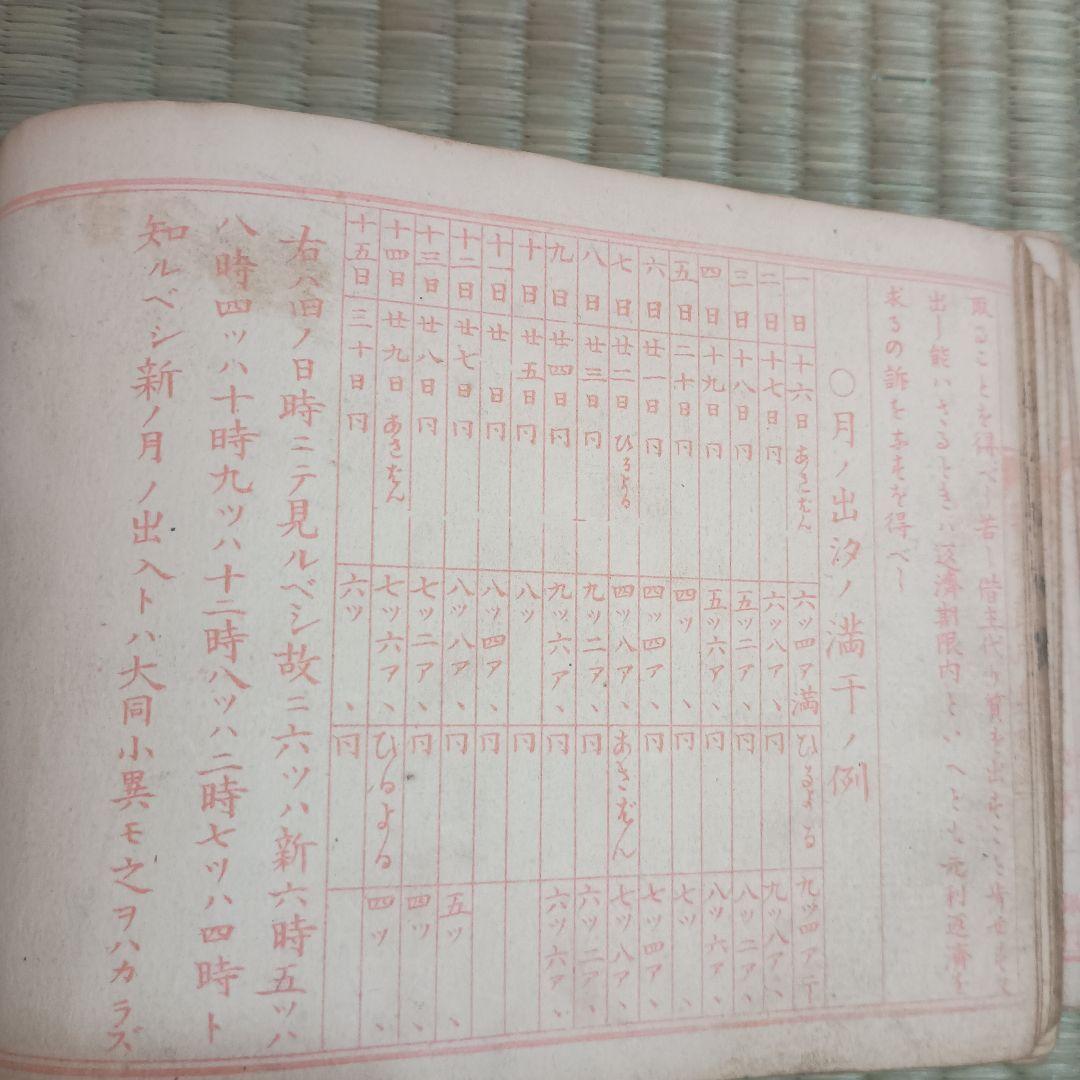 取ることを得べし若し借主代り質を出すことを肯せずして
出し能ハざるときハ返済期限内といへども元利返済を
求るの訴を為すを得べし
〇月ノ出汐ノ満干ノ例
一日 十六日 あさばん 六ツ四ア満 ひるよる 九ツ四ア干
二日 十七日 円 六ツ八ア、 円 九ツ八ア、
三日 十八日 円 五ツ二ア、 円 八ツ二ア、
四日 十九日 円 五ツ六ア、 円 八ツ六ア、
五日 二十日 円 四ツ 、 円 七ツ 、
六日 廿一日 円 四ツ四ア、 円 七ツ四ア、
七日 廿二日 ひるよる 四ツ八ア、 あさばん 七ツ八ア、
八日 廿三日 円 九ツ二ア、 円 六ツ二ア、
九日 廿四日 円 九ツ六ア、 円 六ツ六ア、
十日 廿五日 円 八ツ 円
十一日 廿 日 円 八ツ四ア 円
十二日 廿七日 円 八ツ八ア、 五ツ 、
十三日 廿八日 円 七ツ二ア、 円 四ツ 、
十四日 廿九日 あさばん 七ツ六ア、 ひるよる 四ツ 、
十五日 三十日 円 六ツ 、 円
右ハ旧ノ日時ニテ見ルベシ故ニ六ツハ新六時五ツハ
八時四ツハ十時九ツハ十二時八ツハ二時七ツハ四時ト
知ルベシ新ノ月ノ出入トハ大同小異モ之ヲハカラズ